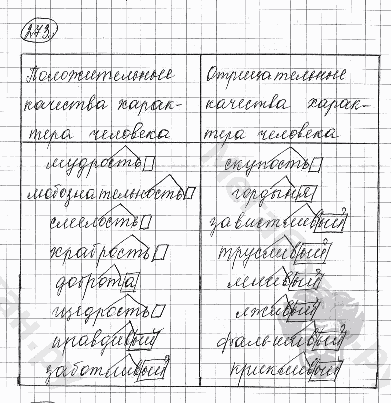 273.
Положительные
качества харак-
тера человека
Отрицательные
качества харак-
тера человека
мудрость
скупость
любознательность
гордыня
смелость
завистливый
храбрость
трусливый
доброта
ленивый
щедрость
лживый
правдивый
фальшивый
заботливый